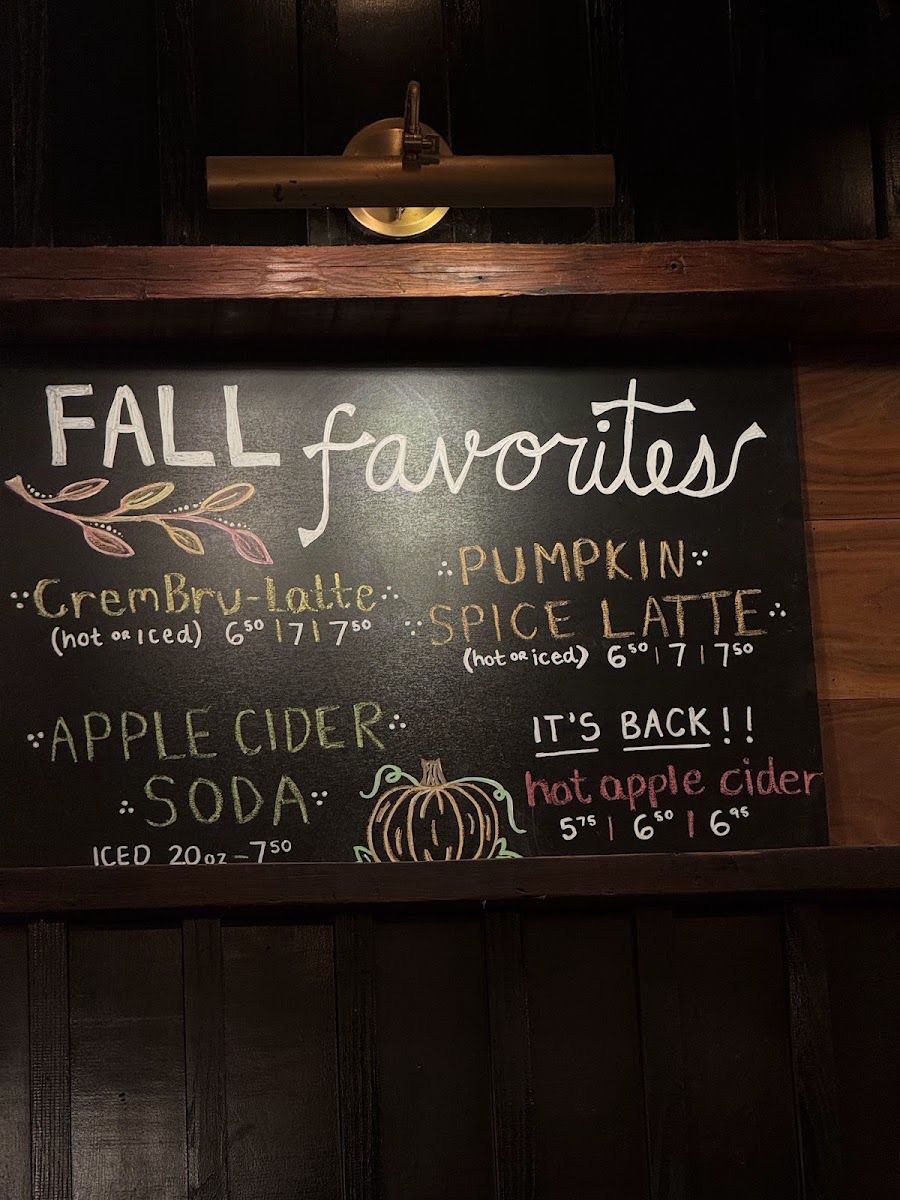 FALL favorites
CremBru-Latte
(hot or Iced) 6⁵⁰ | 7 | 7⁵⁰
PUMPKIN
SPICE LATTE
(hot OR iced) 6⁵⁰ | 7 | 7⁵⁰
APPLE CIDER
SODA
ICED 20oz - 7⁵⁰
IT'S BACK!!
hot apple cider
5⁷⁵ | 6⁵⁰ | 6⁹⁵